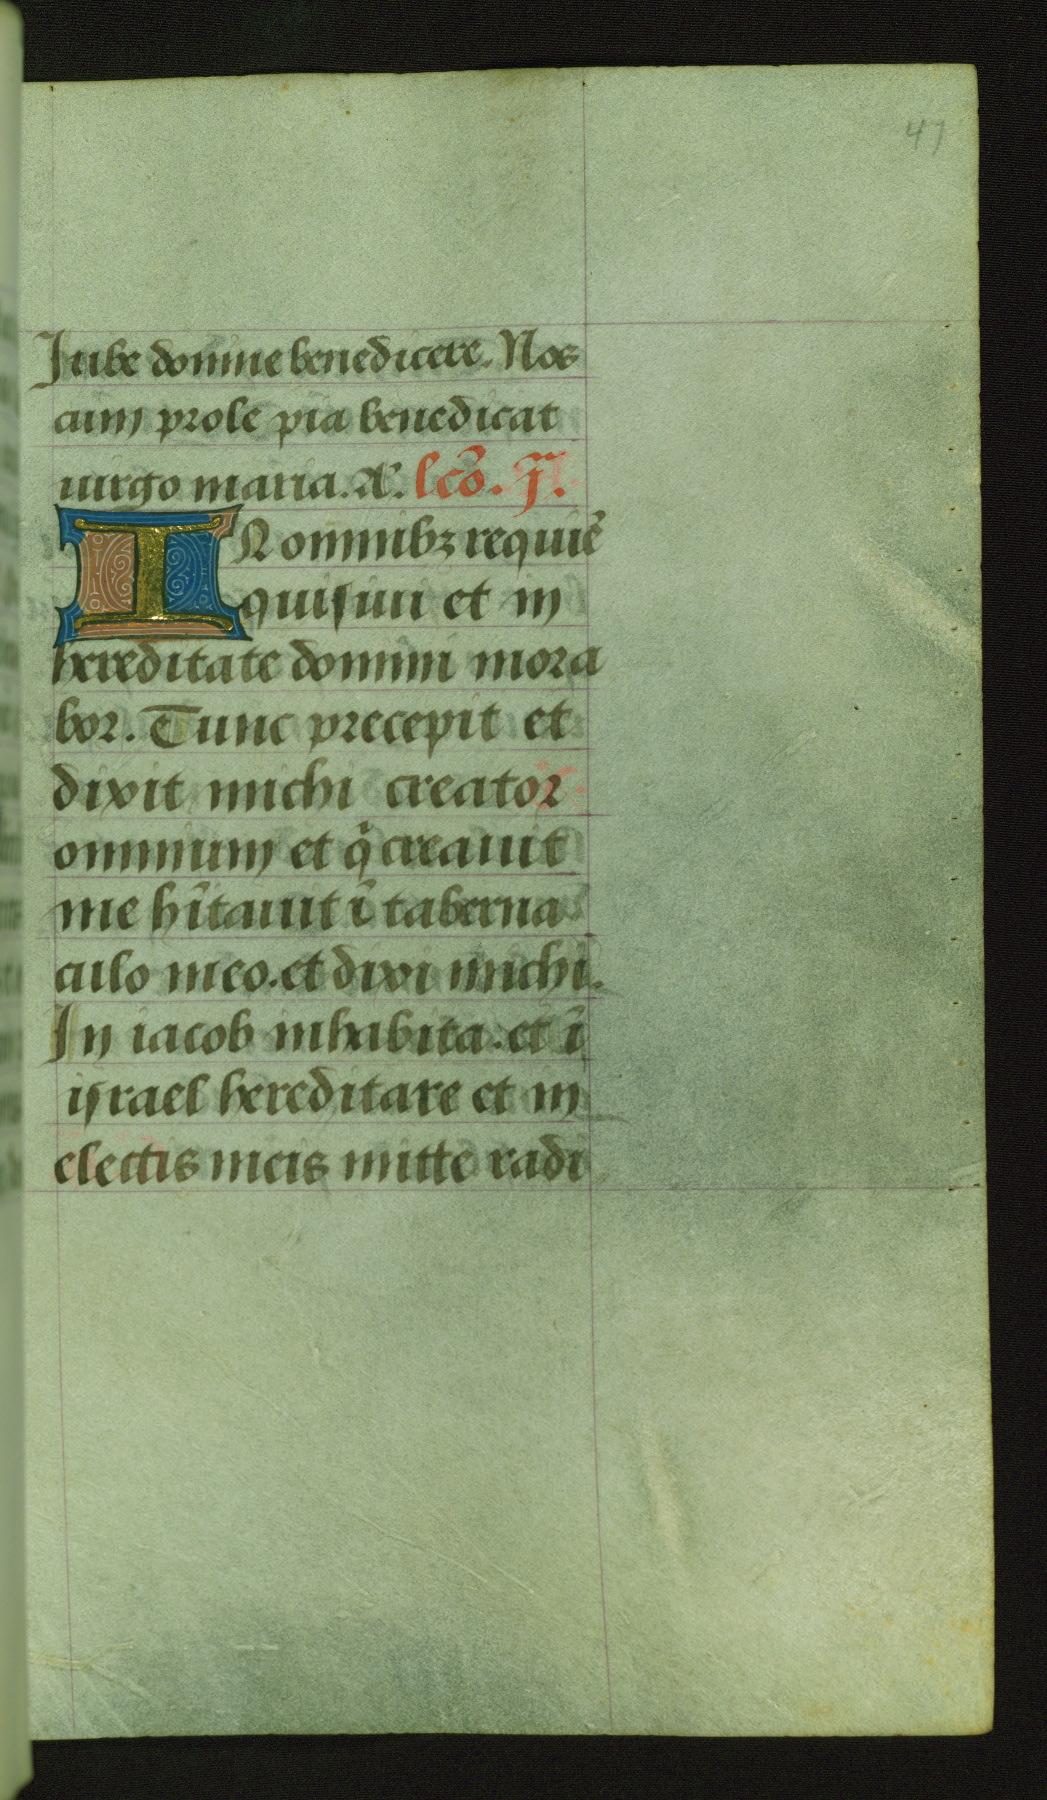 47
Iube domne benedicere. Nos
cum prole pia benedicat
uirgo maria. A. lcõ. j̃.
IN omnibꝫ requiẽ
quisiui et in
hereditate domini mora
bor. Tunc precepit et
dixit michi creator
omnium et q̇ creauit
me hĩtauit ĩ taberna
culo meo. et dixi michi.
In iacob inhabita. et ĩ
israel hereditare et in
electis meis mitte radi